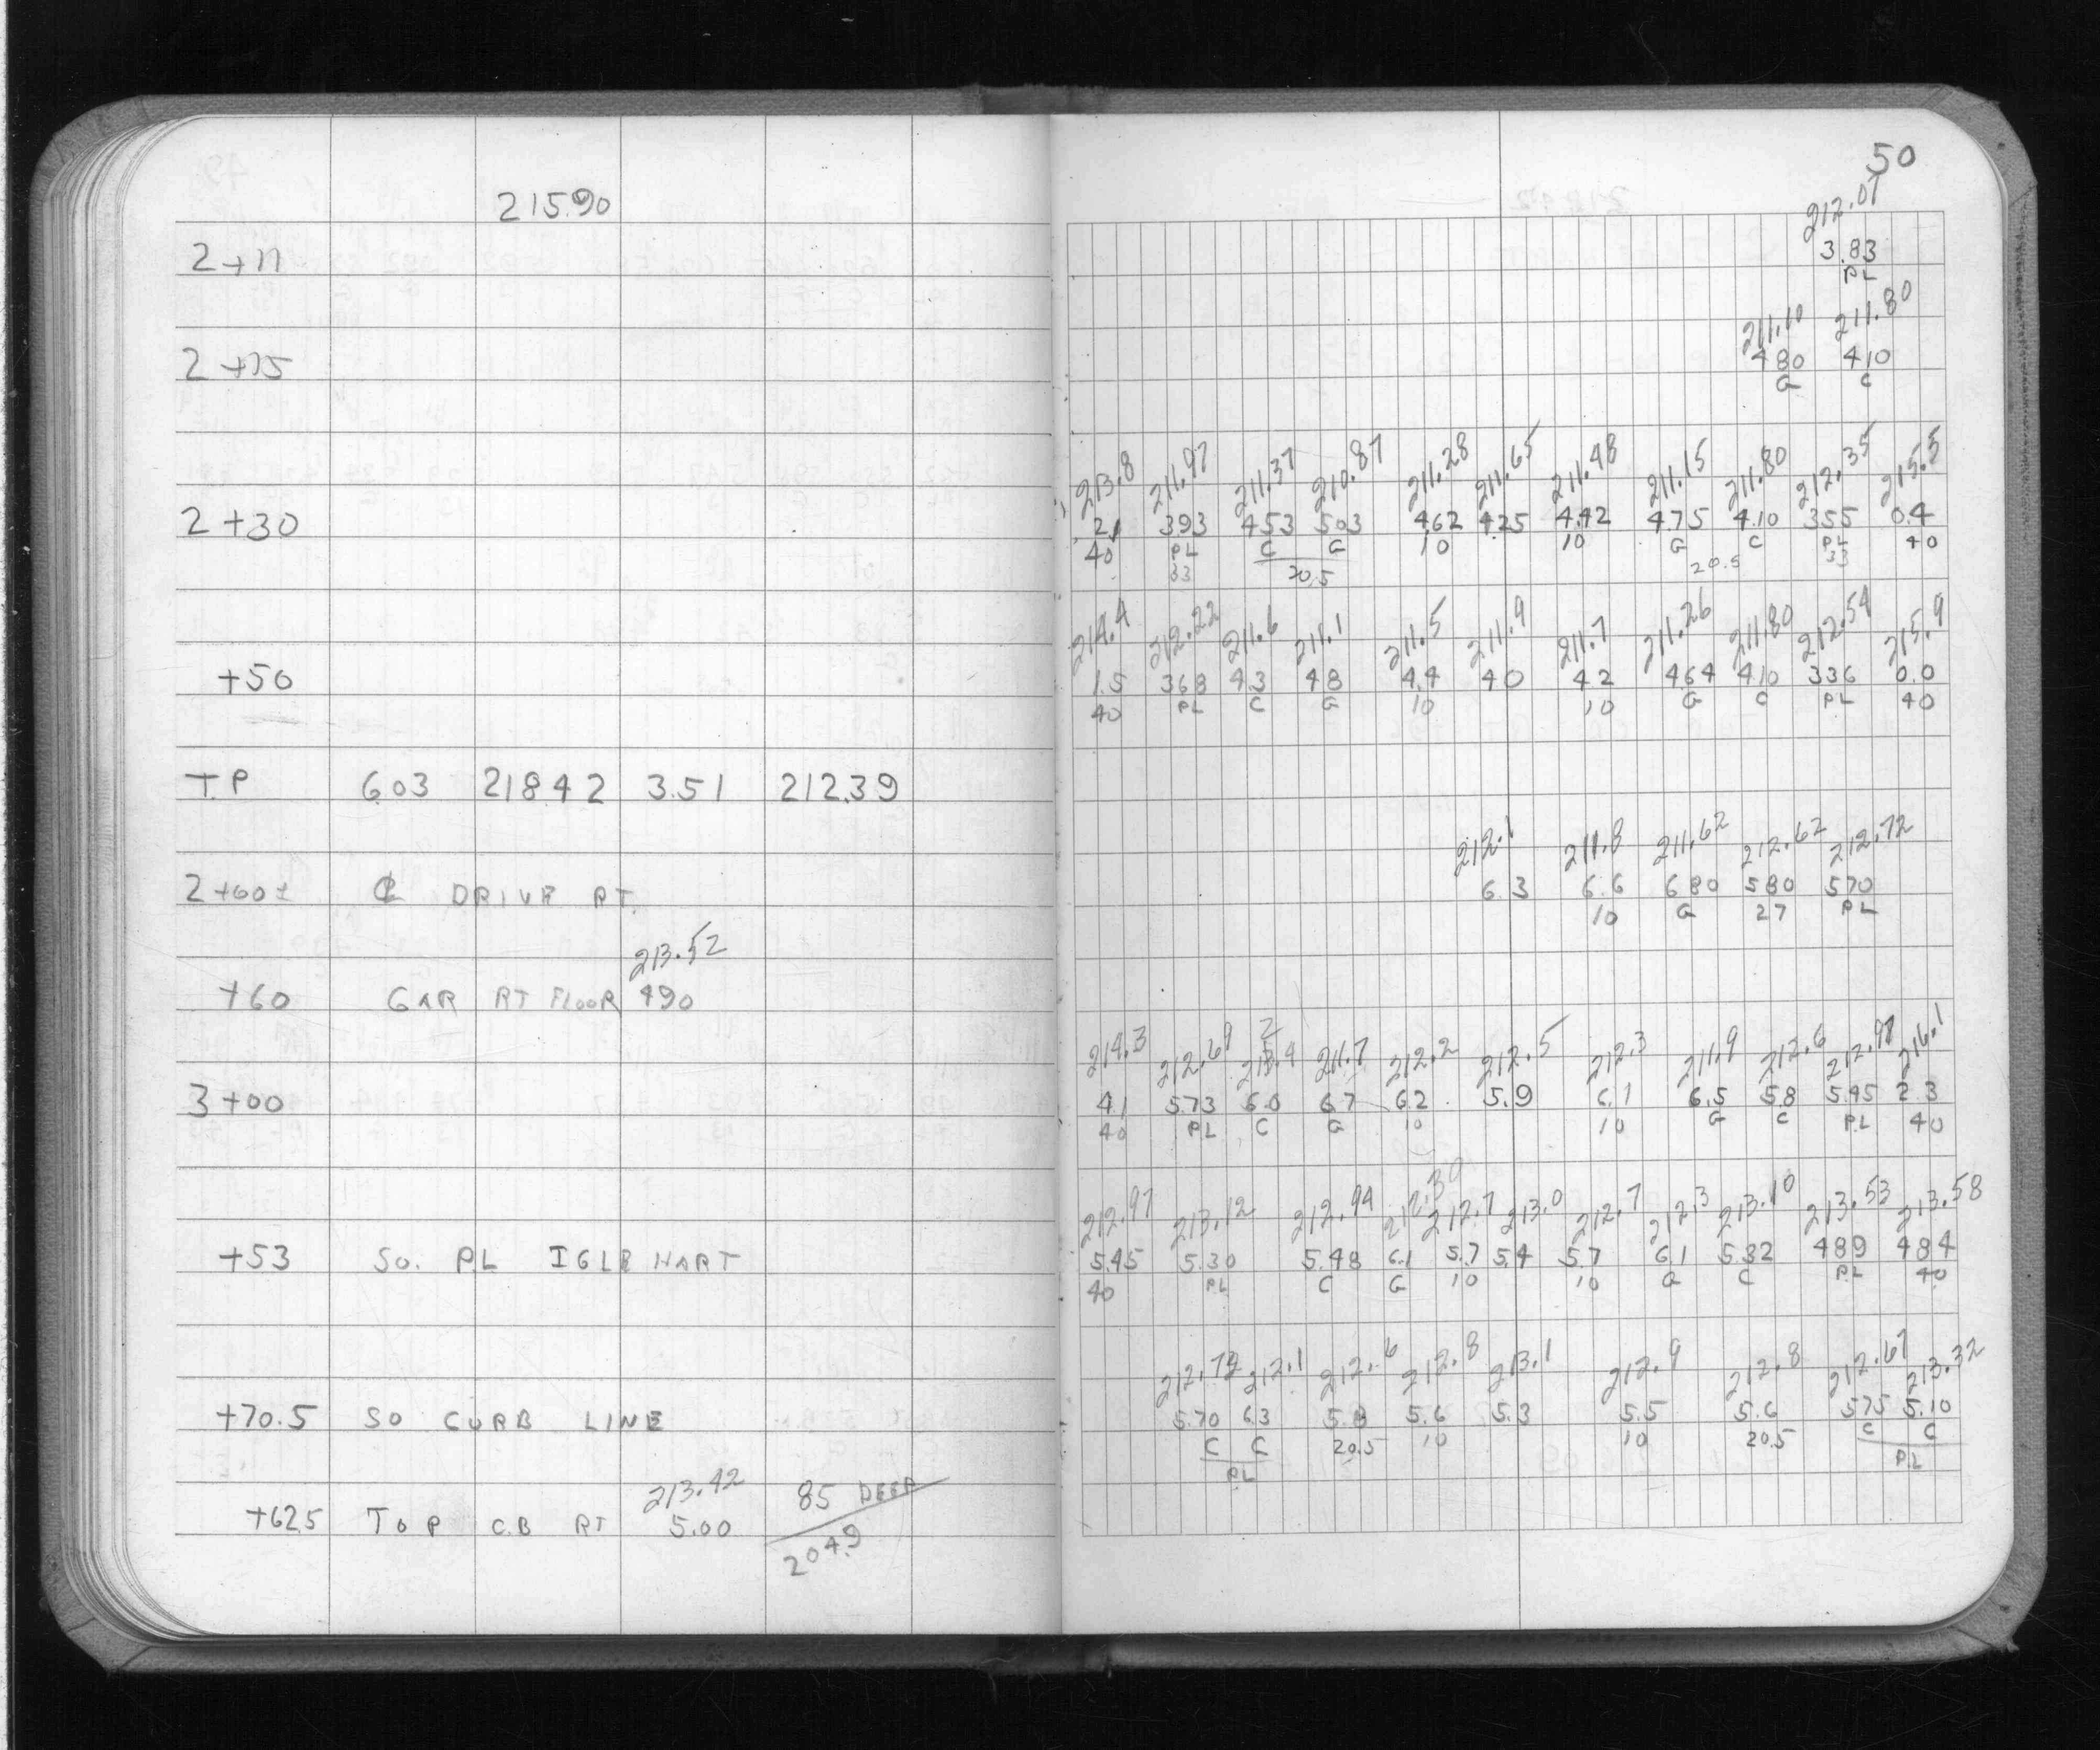 50
215.90
212.07
2+11 3.83
PL
211.10 211.80
2+15 4.80 4.10
G C
213.8 211.97 211.37 210.87 211.28 211.65 211.48 211.15 211.80 212.35 215.5
2+30 2.1 3.93 4.53 5.03 4.62 4.25 4.42 4.75 4.10 3.55 0.4
40 PL C G 10 10 G C PL 40
33 20.5 20.5 33
214.4 212.22 211.6 211.1 211.5 211.9 211.7 211.26 211.80 212.54 215.9
+50 1.5 3.68 4.3 4.8 4.4 4.0 4.2 4.64 4.10 3.36 0.0
40 PL C G 10 10 G C PL 40
T.P 6.03 218.42 3.51 212.39
212.1 211.8 211.62 212.62 212.72
2+60± ℄ DRIVE RT. 6.3 6.6 6.80 5.80 5.70
10 G 27 PL
213.52
+60 GAR RT FLOOR 4.90
214.3 212.69 212.4 211.7 212.2 212.5 212.3 211.9 212.6 212.97 216.1
3+00 4.1 5.73 6.0 6.7 6.2 5.9 6.1 6.5 5.8 5.45 2.3
40 PL C G 10 10 G C PL 40
212.97 213.12 212.94 212.30 212.7 213.0 212.7 212.3 213.10 213.53 213.58
+53 SO. PL IGLEHART 5.45 5.30 5.48 6.1 5.7 5.4 5.7 6.1 5.32 4.89 4.84
40 PL C G 10 10 G C PL 40
212.72 212.1 212.6 212.8 213.1 212.9 212.8 212.67 213.32
+70.5 SO CURB LINE 5.70 6.3 5.8 5.6 5.3 5.5 5.6 5.75 5.10
C C 20.5 10 10 20.5 C C
PL PL
213.42 85 DEEP
+62.5 TOP C.B RT 5.00 204.9